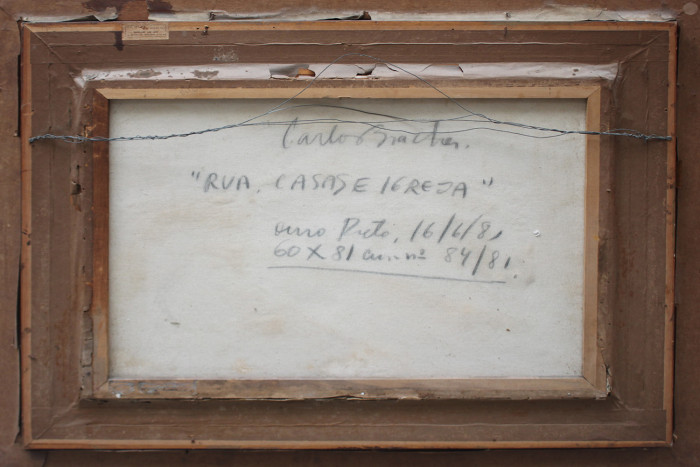 Carlos Bracher.
"RUA, CASAS E IGREJA"
Ouro Preto, 16/6/81
60 X 81 cm. nº 84/81.